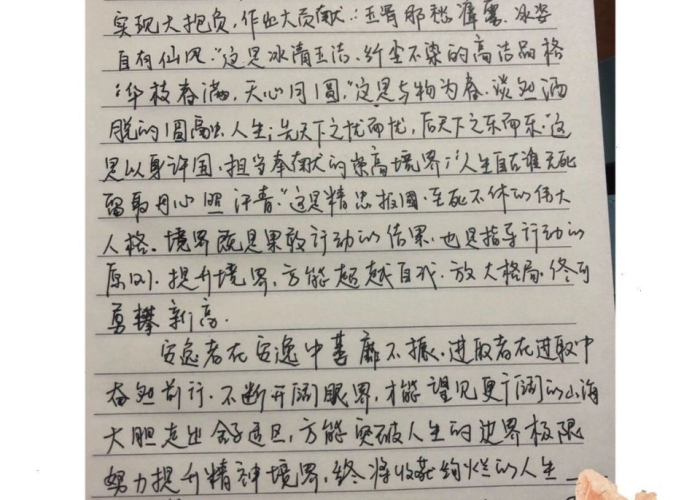 实现大抱负,作出大贡献:“玉骨那愁瘴雾,冰姿
自有仙风。”这是冰清玉洁、纤尘不染的高洁品格
“华枝春满,天心月圆,”这是与物为春、淡然洒
脱的圆融人生;先天下之忧而忧,后天下之乐而乐”这
是以身许国、担当奉献的崇高境界;“人生自古谁无死
留取丹心照汗青。”这是精忠报国、至死不休的伟大
人格。境界既是果敢行动的结果,也是指导行动的
原则。提升境界,方能超越自我,放大格局,终可
勇攀新高。
安逸者在安逸中萎靡不振,进取者在进取中
奋然前行。不断开阔眼界,才能望见更广阔的山海
大胆走出舒适区,方能突破人生的边界极限
努力提升精神境界,终将收获绚烂的人生